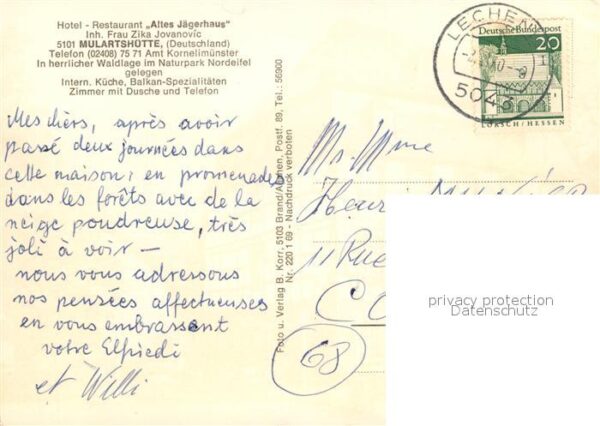 Hotel - Restaurant „Altes Jägerhaus"
Inh. Frau Zika Jovanovic
5101 MULARTSHÜTTE, (Deutschland)
Telefon (02408) 75 71 Amt Kornelimünster
In herrlicher Waldlage im Naturpark Nordeifel
gelegen
Intern. Küche, Balkan-Spezialitäten
Zimmer mit Dusche und Telefon
Mes chers, après avoir
passé deux journées dans
cette maison, en promenades
dans les forêts avec de la
neige poudreuse, très
joli à voir —
nous vous adressons
nos pensées affectueuses
en vous embrassant
votre Elfriedi
et Willi
Foto u. Verlag B. Korr, 5103 Brand/Aachen, Postf. 89, Tel.: 56900
Nr. 220 1 69 - Nachdruck verboten
LECHE
504
Deutsche Bundespost
20
LORSCH/HESSEN
Mr. Mme
Henri
11 Rue
CO
68
privacy protection
Datenschutz